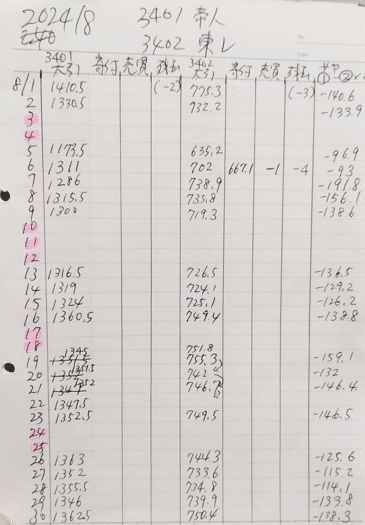 2024/8 3401 帝人
3402 東レ
3401 3402
大引 寄付 売買 残玉 大引 寄付 売買 残玉
8/1 1410.5 (-2) 775.3 (-3) -140.6
2 1330.5 732.2 -133.9
3
4
5 1173.5 635.2 -96.9
6 1311 702 667.1 -1 -4 -93
7 1286 738.9 -191.8
8 1315.5 735.8 -156.1
9 1300 719.3 -138.6
10
11
12
13 1316.5 726.5 -136.5
14 1319 724.1 -129.2
15 1324 725.1 -126.2
16 1360.5 749.4 -138.8
17
18
1345 751.8
19 755.3 -159.1
1351.5
20 742 -132
1352
21 746.7 -146.4
22 1347.5
23 1352.5 749.5 -146.5
24
25
26 1363 744.3 -125.6
27 1352 733.6 -115.2
28 1355.5 734.8 -114.1
29 1346 739.9 -133.8
30 1362.5 750.4 -138.3